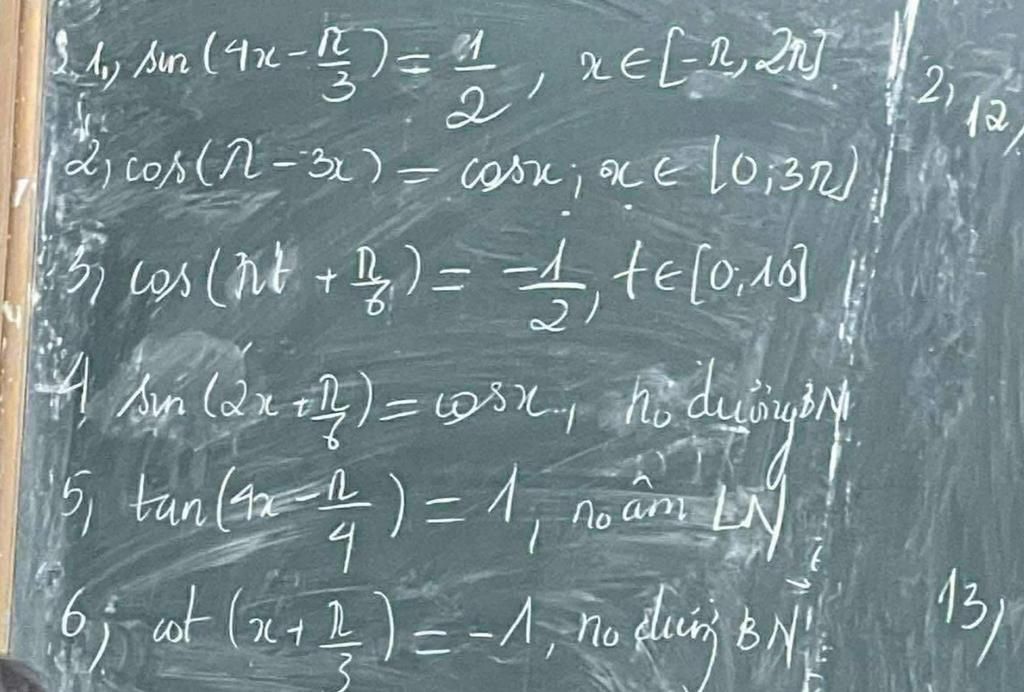 1, sin(4x - π/3) = 1/2, x ∈ [-π, 2π]
2, cos(π - 3x) = cosx; x ∈ [0; 3π)
3, cos(πt + π/6) = -1/2, t ∈ [0; 10]
4, sin(2x + π/6) = cosx, no dương BN
5, tan(4x - π/4) = 1, no âm LN
6, cot(x + π/3) = -1, no dương BN
2,
12,
13,